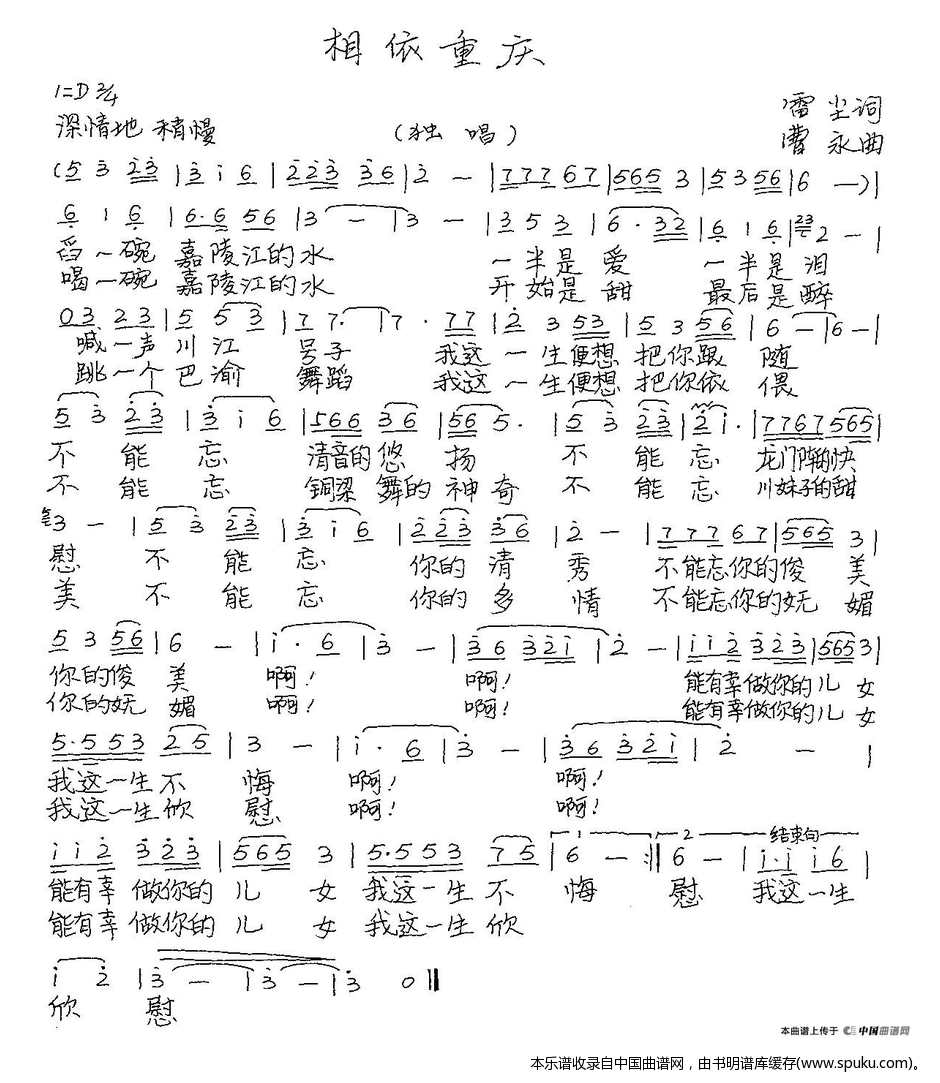 相依重庆
1=D 2/4
深情地 稍慢
(独 唱)
雷 尘词
曹 永曲
(5 3 2 3 | 3 i 6 | 2 2 3 3 6 | 2 — | 7 7 7 6 7 | 5 6 5 3 | 5 3 5 6 | 6 —) |
6 1 6 | 6·6 5 6 | 3 — | 3 — | 3 5 3 | 6·3 2 | 6 1 6 | 23 2 — |
舀一碗 嘉陵江的水 一半是 爱 一半是 泪
喝一碗 嘉陵江的水 开始是 甜 最后是 醉
0 3 2 3 | 5 5 3 | 7 7· | 7 · 7 7 | 2 3 5 3 | 5 3 5 6 | 6 — | 6 — |
喊一声 川江 号子 我这一生便想 把你跟 随
跳一个 巴渝 舞蹈 我这一生便想 把你依 偎
5 3 2 3 | 3 i 6 | 5 6 6 3 6 | 5 6 5· | 5 3 2 3 | 2 i· | 7 7 6 7 5 6 5 |
不 能 忘 清音的 悠 扬 不 能 忘 龙门阵的快
不 能 忘 铜梁 舞的 神 奇 不 能 忘 川妹子的甜
3 — | 5 3 2 3 | 3 i 6 | 2 2 3 3 6 | 2 — | 7 7 7 6 7 | 5 6 5 3 |
慰 不 能 忘 你的 清 秀 不能忘你的俊 美
美 不 能 忘 你的 多 情 不能忘你的妩 媚
5 3 5 6 | 6 — | i · 6 | 3 — | 3 6 3 2 i | 2 — | i i 2 3 2 3 | 5 6 5 3 |
你的俊 美 啊! 啊! 能有幸做你的儿 女
你的妩 媚 啊! 啊! 能有幸做你的儿 女
5·5 5 3 2 5 | 3 — | i · 6 | 3 — | 3 6 3 2 i | 2 — |
我这一生不 悔 啊! 啊!
我这一生欣 慰 啊! 啊!
i i 2 3 2 3 | 5 6 5 3 | 5·5 5 3 7 5 | 1 6 — :| 2 6 — | 结束句 i·i i 6 |
能有幸 做你的 儿 女 我这一生 不 悔 慰 我这一生
能有幸 做你的 儿 女 我这一生 欣
i 2 | 3 — | 3 — | 3 0 ‖
欣 慰
本曲谱上传于 中国曲谱网
本乐谱收录自中国曲谱网，由书明谱库缓存(www.spuku.com)。